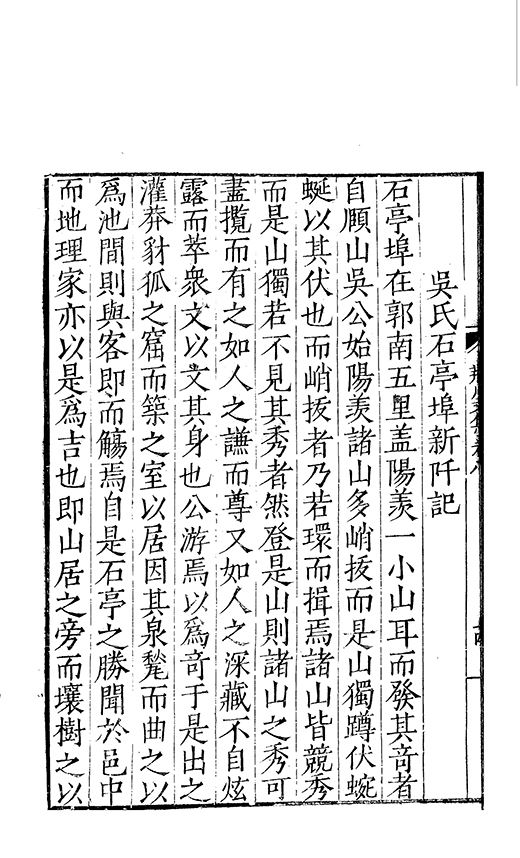 吳氏石亭埠新阡記
石亭埠在郭南五里盖陽羡一小山耳而發其竒者
自頋山吳公始陽羡諸山多峭拔而是山獨蹲伏蜿
蜒以其伏也而峭拔者乃若環而揖焉諸山皆競秀
而是山獨若不見其秀者然登是山則諸山之秀可
盡攬而有之如人之謙而尊又如人之深藏不自炫
露而萃衆文以文其身也公游焉以爲竒于是出之
灌莽豺狐之窟而築之室以居因其泉甃而曲之以
爲池間則與客即而觴焉自是石亭之勝聞於邑中
而地理家亦以是爲吉也即山居之旁而壤樹之以